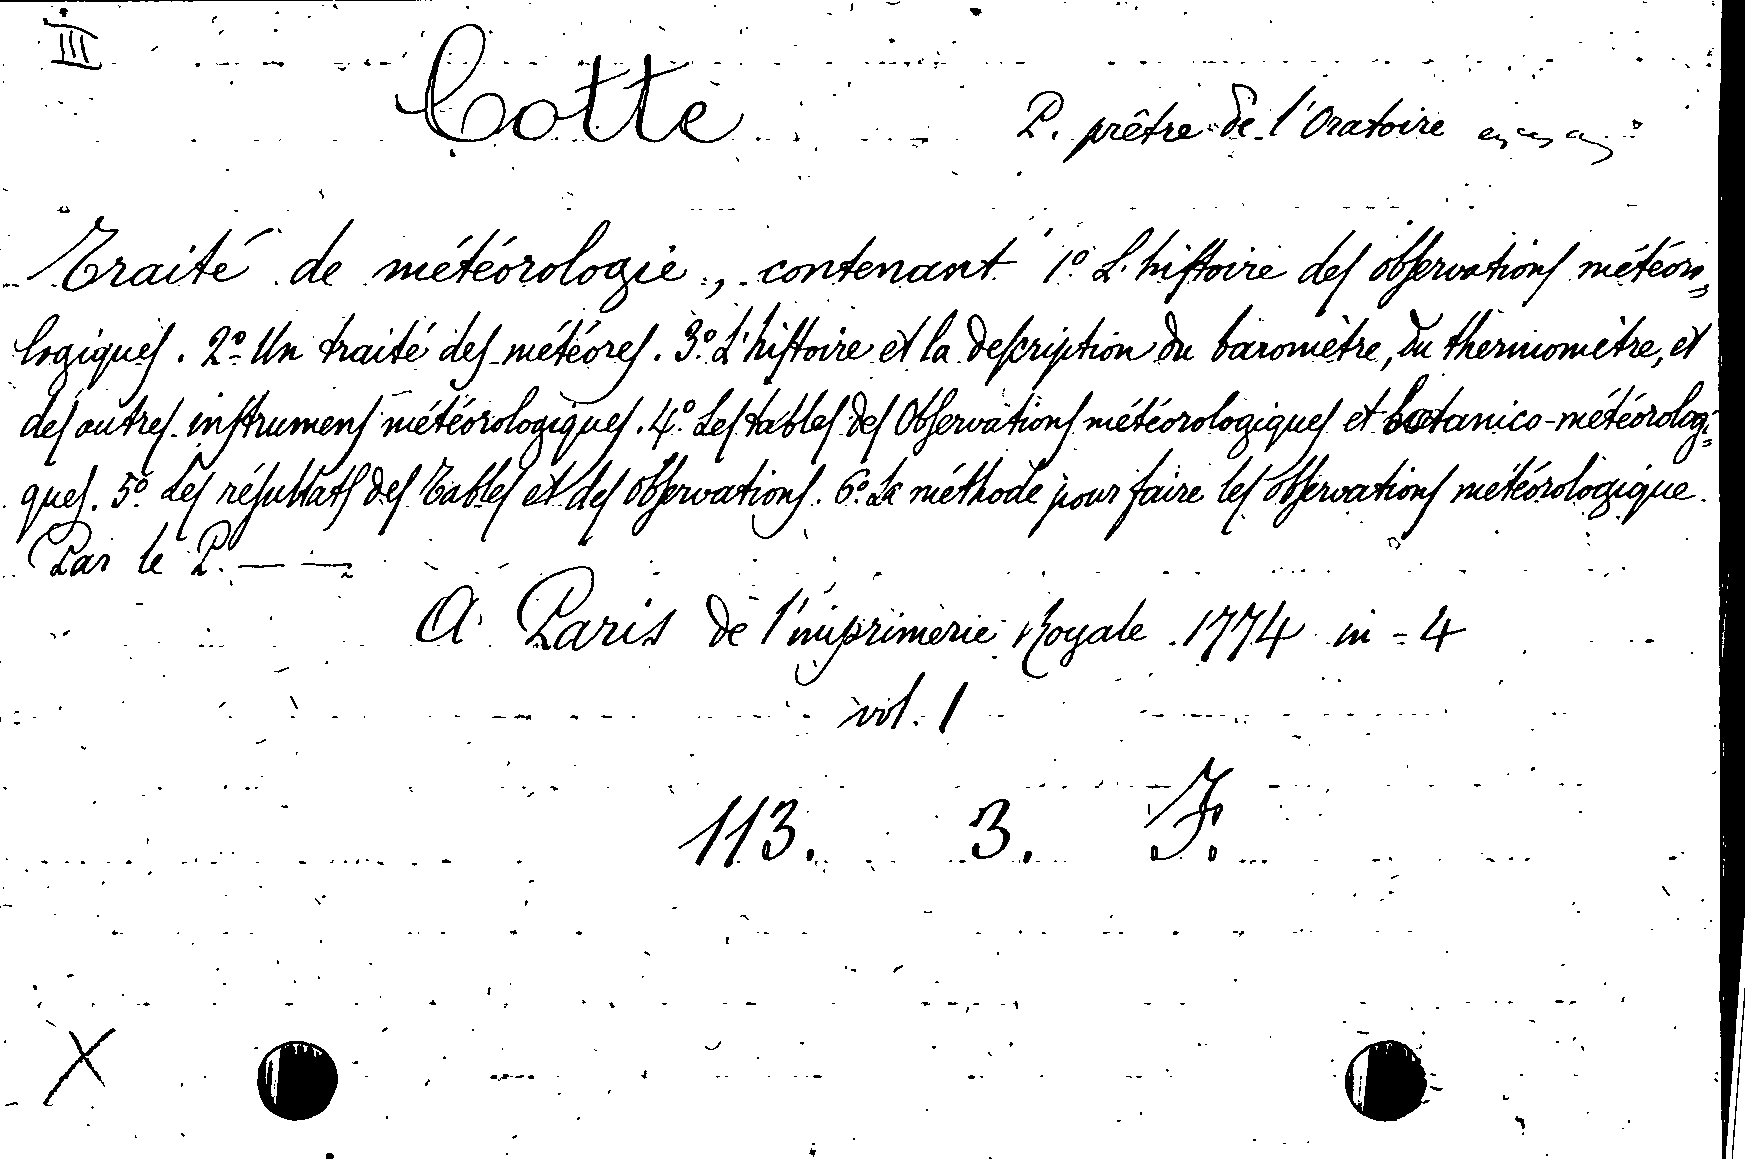 III
Cotte
P. prêtre de l'Oratoire
Traité de météorologie, contenant 1º L'histoire des observations météoro=
logiques. 2º Un traité des météores. 3º L'histoire et la description du baromètre, du thermomètre, et
des autres instrumens météorologiques. 4º Les tables des Observations météorologiques et botanico-météorologi=
ques. 5º Les résultats des Tables et des observations. 6º La méthode pour faire les observations météorologique.
Par le P. — —
A Paris de l'imprimerie Royale 1774 in-4
vol. 1
113. 3. F.
X